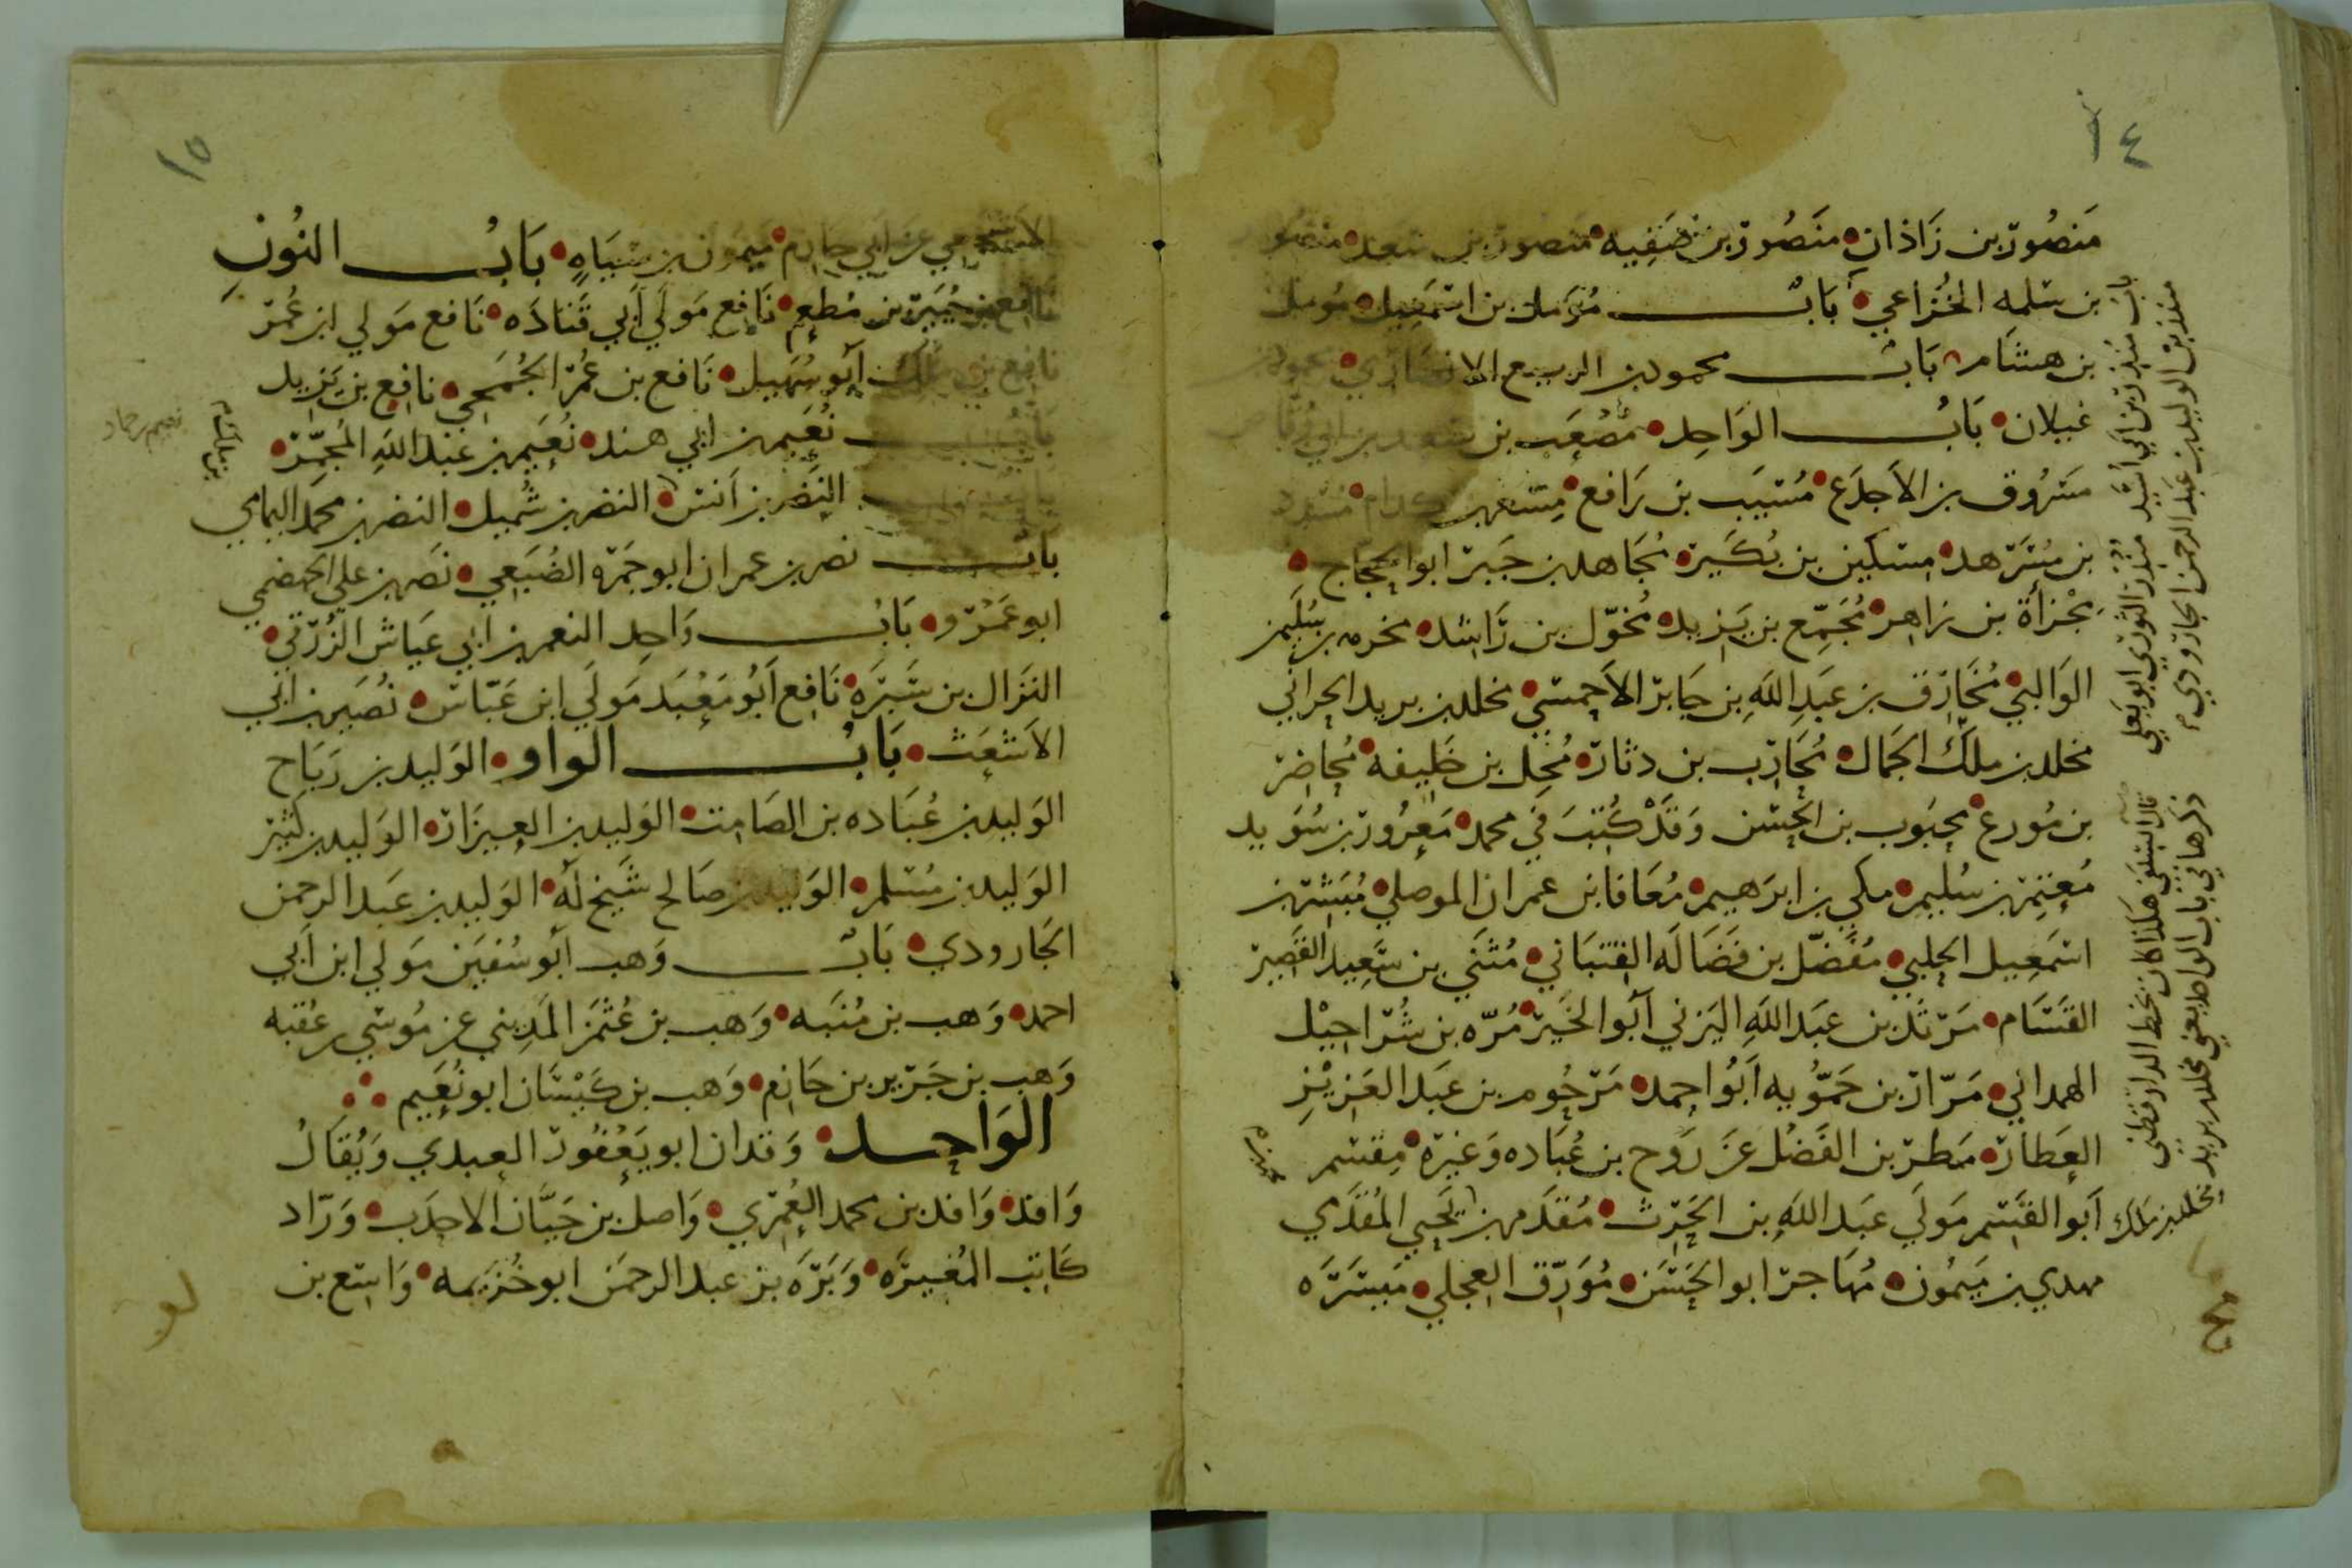 ١٤
منصور بن زاذان منصور بن صفيه منصور بن سعد منصور
بن سلمه الخزاعي باب مؤمل بن اسمعيل مومل
بن هشام باب محمود بن الربيع الانصاري محمود بن
غيلان باب الواحد مصعب بن سعد بن ابي وقاص
مسروق بن الاجدع مسيب بن رافع مسعر بن كدام مسدد
بن مسرهد مسكين بن بكير مجاهد بن جبر ابو الحجاج
مجزأة بن زاهر مجمع بن يزيد مخول بن راشد مخرمه بن سليمن
الوالبي مخارق بن عبد الله بن جابر الاحمسي مخلد بن يزيد الحراني
مخلد بن ملك الجمال محارب بن دثار محل بن خليفه محاضر
بن مورع محبوب بن الحسن وقد كتب في محمد معرور بن سويد
معتمر بن سليمن مكي بن ابرهيم معافا بن عمران الموصلي مبشر بن
اسمعيل الحلبي مفضل بن فضاله القتباني مثني بن سعيد القصير
القسام مرثد بن عبد الله اليزني أبو الخير مره بن شراحيل
الهمداني مرار بن حمويه أبو احمد مرحوم بن عبد العزيز
العطار مطر بن الفضل عن روح بن عباده وغيره مقسم
أبو القسم مولى عبد الله بن الحرث مقدم بن يحيي المقدمي
مهدي بن ميمون مهاجر ابو الحسن مورق العجلي ميسره
باب منذر بن ابي أسيد منذر الثوري ابو يعلى
منذر بن الوليد بن عبد الرحمن الجارودي
قال السلفي هكذا كان بخط الدارقطني
ذكرهما في باب الواحد يعني مخلد بن يزيد
مخلد بن ملك
١٥
الاشجعي عن ابي حازم ميمون بن سياه باب النون
نافع بن جبير بن مطعم نافع مولى أبي قتاده نافع مولي ابن عمر
نافع بن ملك أبو سهيل نافع بن عمر الجمحي نافع بن يزيد
باب نعيم بن ابي هند نعيم بن عبد الله المجمر
باب النضر بن أنس النضر بن شميل النضر بن محمد اليمامي
باب نصر بن عمران ابو جمره الضبعي نصر بن علي الجهضمي
ابو عمرو باب واحد النعمن بن ابي عياش الزرقي
النزال بن سبره نافع أبو معبد مولى ابن عباس نصير بن ابي
الاشعث باب الواو الوليد بن رباح
الوليد بن عباده بن الصامت الوليد بن العيزار الوليد بن كثير
الوليد بن مسلم الوليد بن صالح شيخ له الوليد بن عبد الرحمن
الجارودي باب وهب أبو سفين مولي ابن أبي
احمد وهب بن منبه وهب بن عثمن المديني عن موسي بن عقبه
وهب بن جرير بن حازم وهب بن كيسان ابو نعيم
الواحد وقدان ابو يعفور العبدي ويقال
واقد واقد بن محمد العمري واصل بن حيان الاحدب وراد
كاتب المغيره وبره بن عبد الرحمن ابو خزيمه واسع بن
نعيم بن حماد